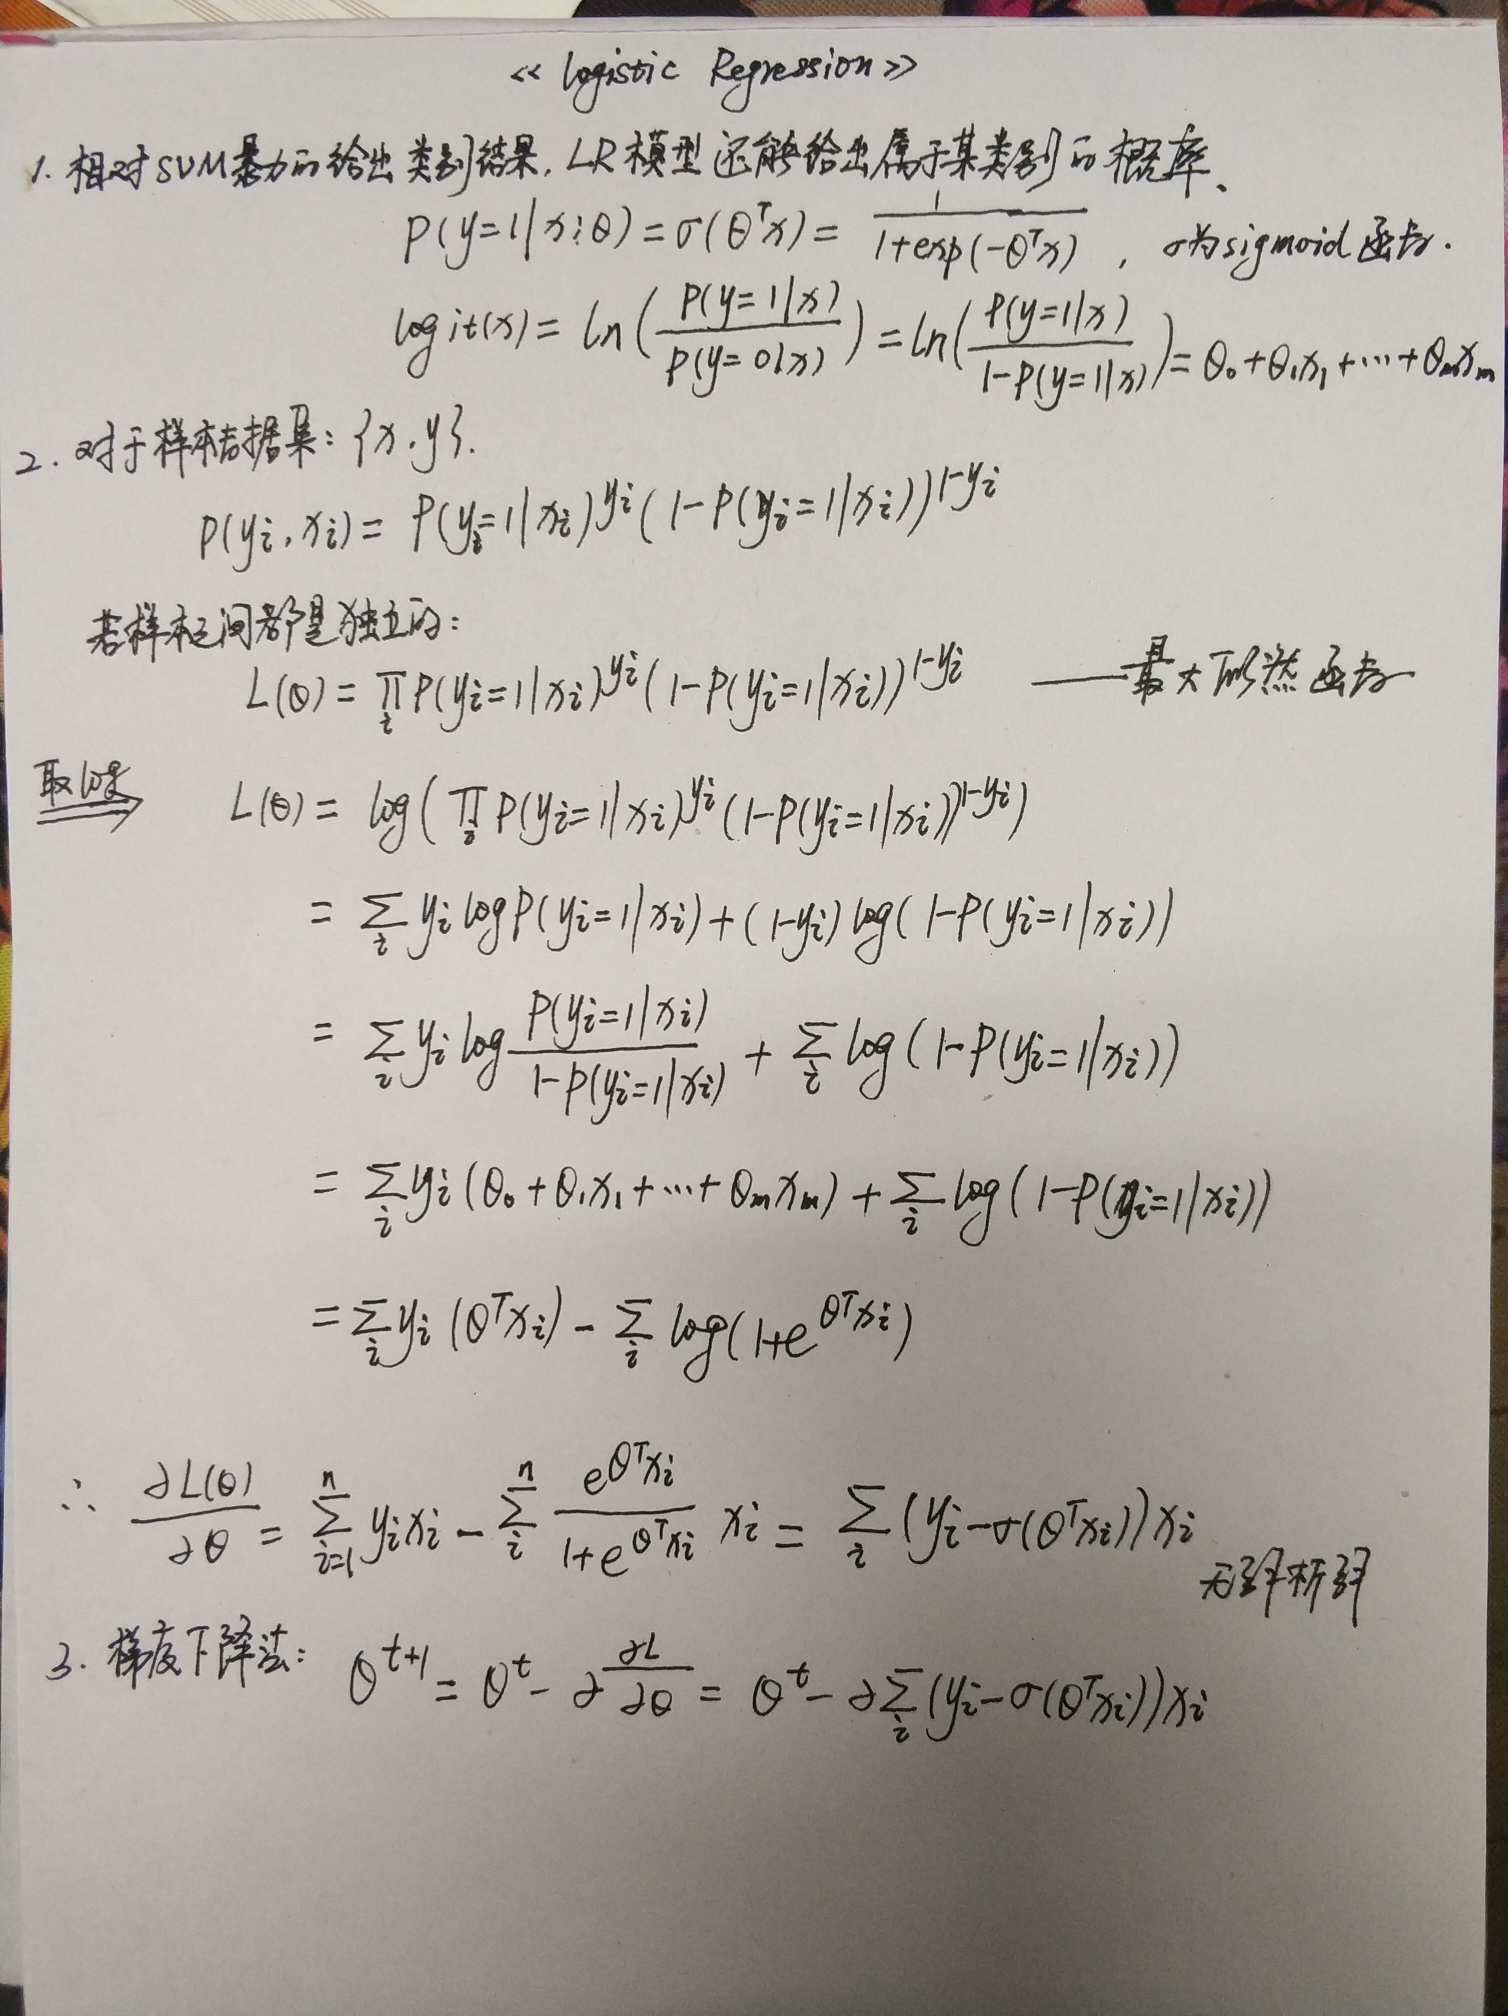 << Logistic Regression >>
1. 相对SVM暴力的给出类别结果, LR模型还能给出属于某类别的概率、
P(y=1|x;θ) = σ(θᵀx) = 1/(1+exp(-θᵀx)) , σ为sigmoid函数.
logit(x) = ln(P(y=1|x)/P(y=0|x)) = ln(P(y=1|x)/(1-P(y=1|x))) = θ₀+θ₁x₁+···+θₘxₘ
2. 对于样本数据集: {x,y}.
P(yᵢ,xᵢ) = P(yᵢ=1|xᵢ)^yᵢ (1-P(yᵢ=1|xᵢ))^(1-yᵢ)
若样本之间都是独立的:
L(θ) = ∏ᵢ P(yᵢ=1|xᵢ)^yᵢ (1-P(yᵢ=1|xᵢ))^(1-yᵢ) ——最大似然函数
取log ⇒ L(θ) = log(∏ᵢ P(yᵢ=1|xᵢ)^yᵢ (1-P(yᵢ=1|xᵢ))^(1-yᵢ))
= ∑ᵢ yᵢ log P(yᵢ=1|xᵢ) + (1-yᵢ) log(1-P(yᵢ=1|xᵢ))
= ∑ᵢ yᵢ log P(yᵢ=1|xᵢ)/(1-P(yᵢ=1|xᵢ)) + ∑ᵢ log(1-P(yᵢ=1|xᵢ))
= ∑ᵢ yᵢ(θ₀+θ₁x₁+···+θₘxₘ) + ∑ᵢ log(1-P(yᵢ=1|xᵢ))
= ∑ᵢ yᵢ(θᵀxᵢ) - ∑ᵢ log(1+e^(θᵀxᵢ))
∴ ∂L(θ)/∂θ = ∑ᵢ₌₁ⁿ yᵢxᵢ - ∑ᵢⁿ e^(θᵀxᵢ)/(1+e^(θᵀxᵢ)) xᵢ = ∑ᵢ (yᵢ-σ(θᵀxᵢ))xᵢ
无解析解
3. 梯度下降法: θ^(t+1) = θ^t - α ∂L/∂θ = θ^t - α∑ᵢ(yᵢ-σ(θᵀxᵢ))xᵢ